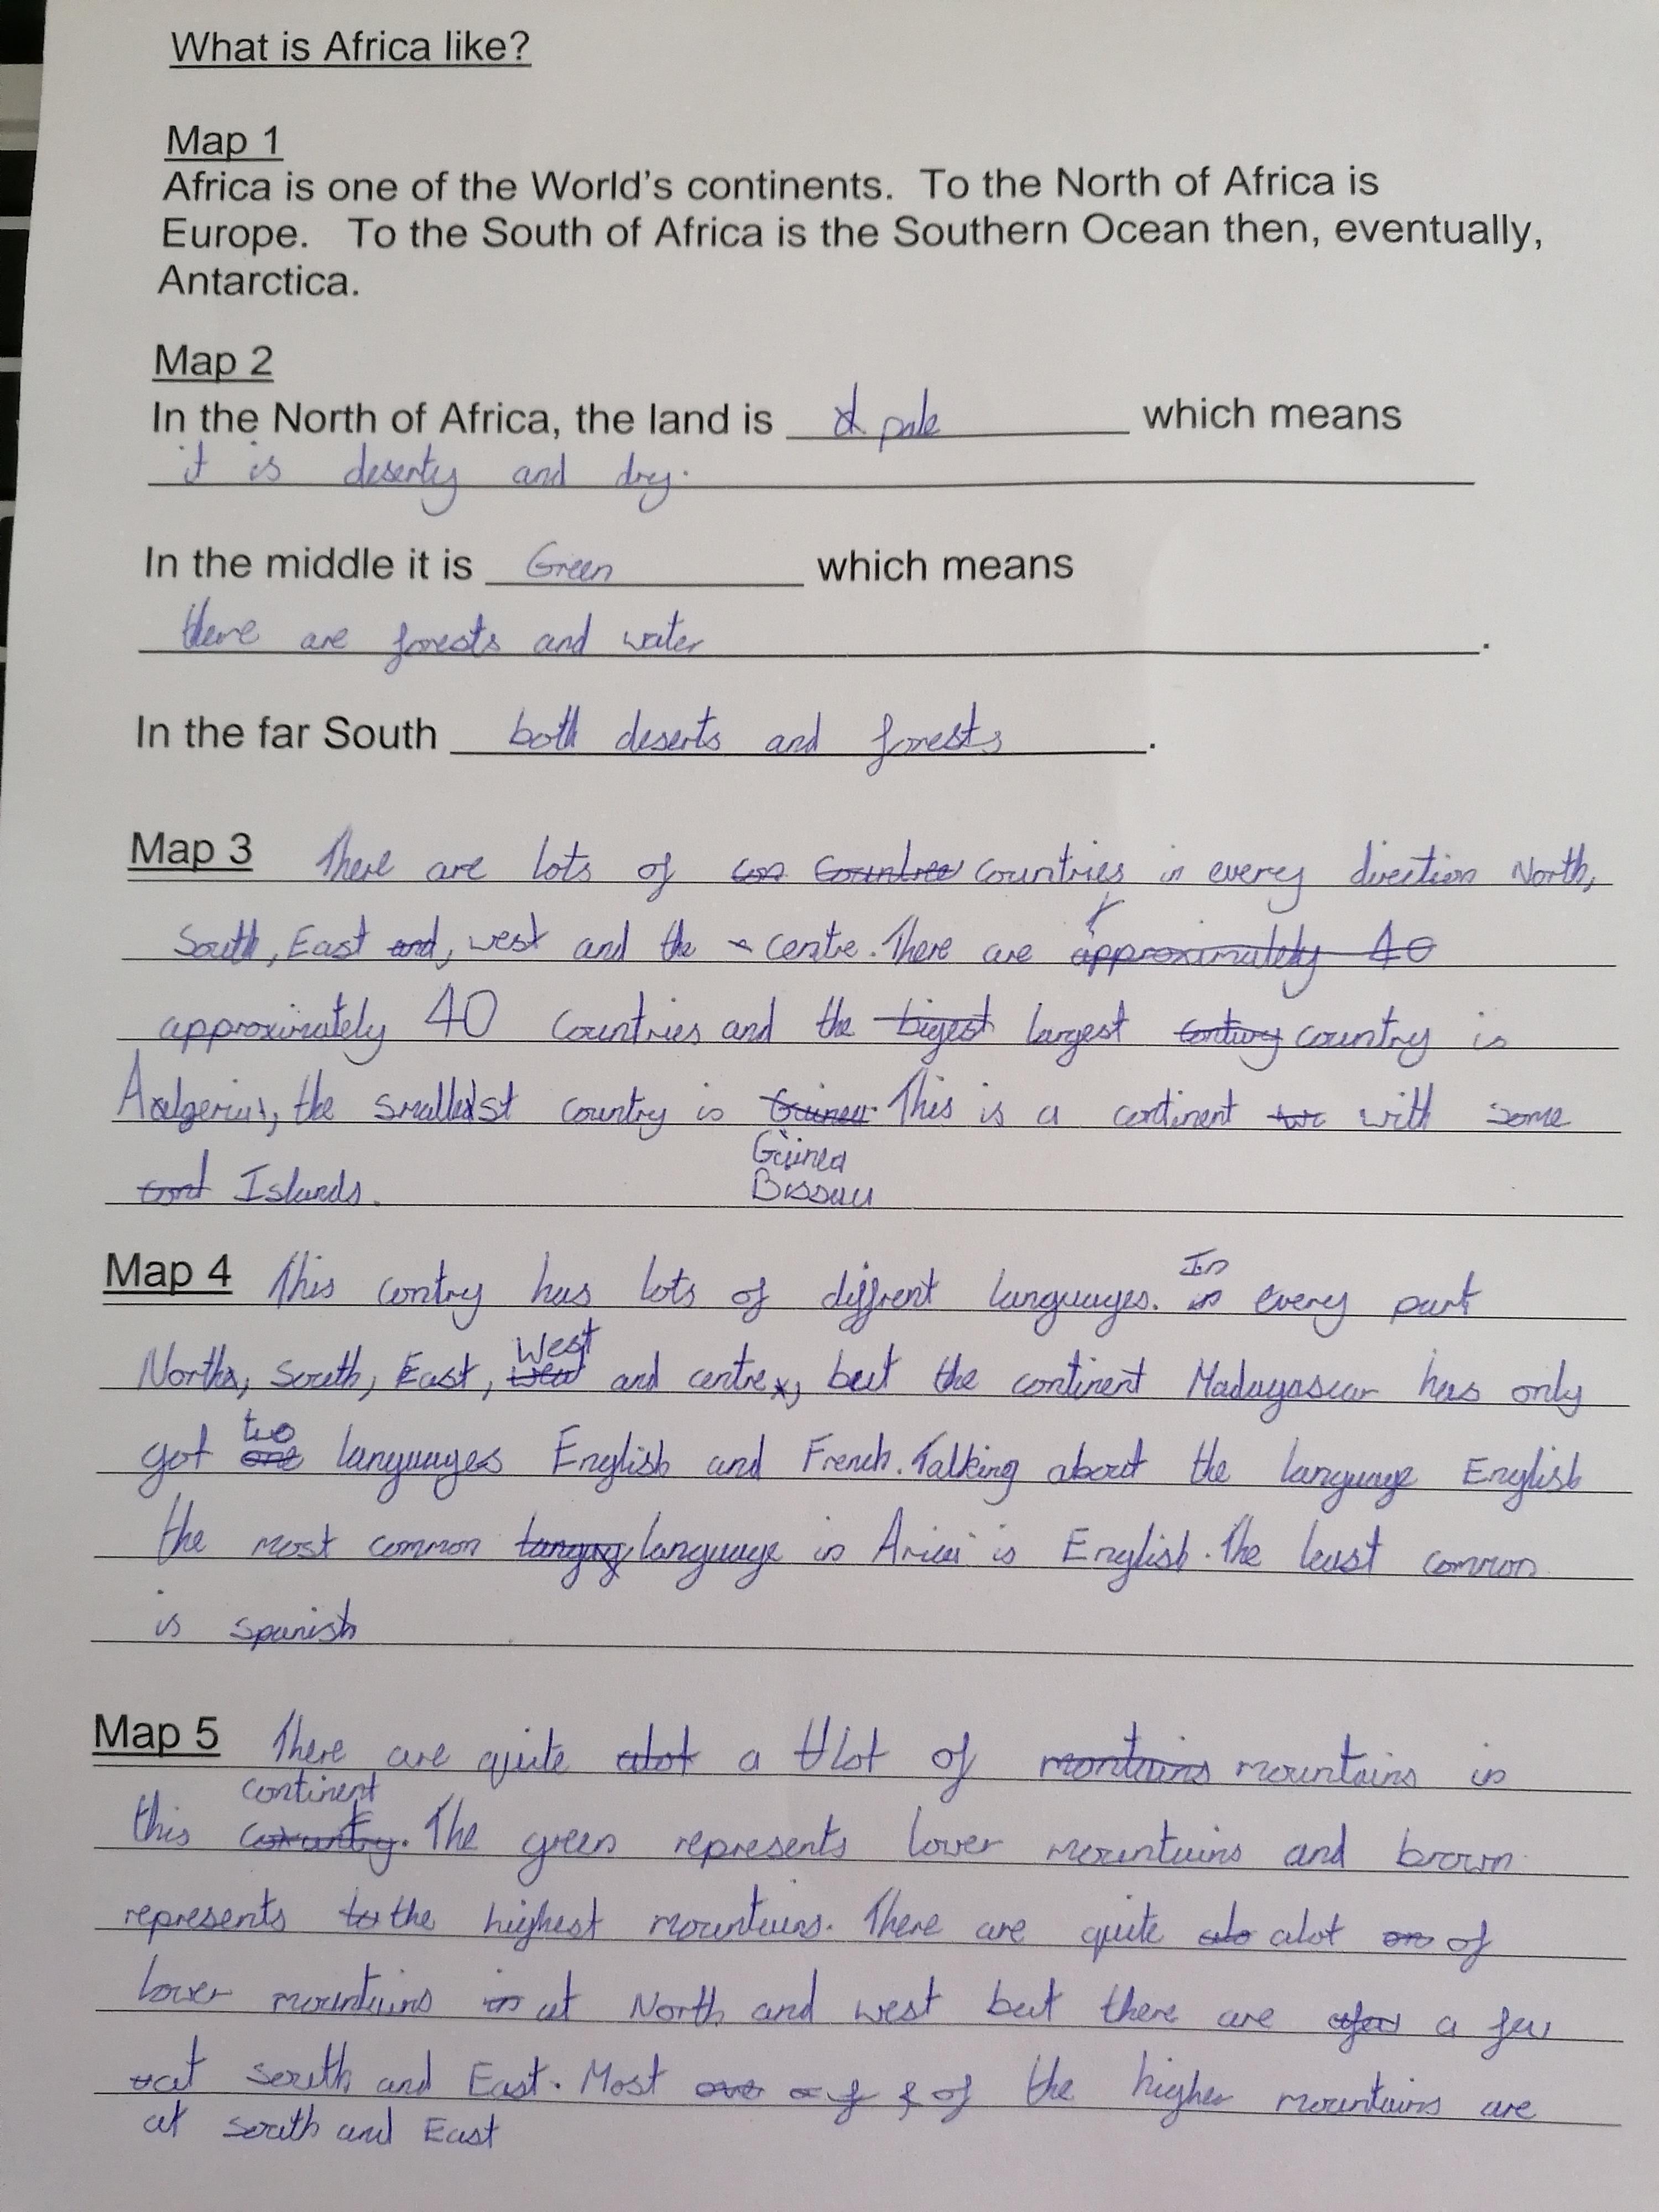 What is Africa like?
Map 1
Africa is one of the World's continents. To the North of Africa is
Europe. To the South of Africa is the Southern Ocean then, eventually,
Antarctica.
Map 2
In the North of Africa, the land is pale which means
it is deserty and dry.
In the middle it is Green which means
there are forests and water.
In the far South both deserts and forests.
Map 3 There are lots of con Countree countries in every direction North,
South, East and, west and the centre. There are approximately 40
approximately 40 Countries and the bigest largest contury country is
Aalgeria, the smallest country is Guinea. This is a continent with some
Guinea
Bissau
Islands.
Map 4 This contry has lots of diffrent languages. in In every part
North, South, East, West and centre, but the continent Madagascar has only
got one two languages English and French. Talking about the language English
the most common langug language in Arica is English. The least common
is spanish
Map 5 There are quite alot a lot of montains mountains in
continent
this country. The green represents lower mountains and brown
represents to the highest mountains. There are quite alo alot on of
lower mountains in at North and west but there are afew a few
at south and East. Most of the higher mountains are
at south and East